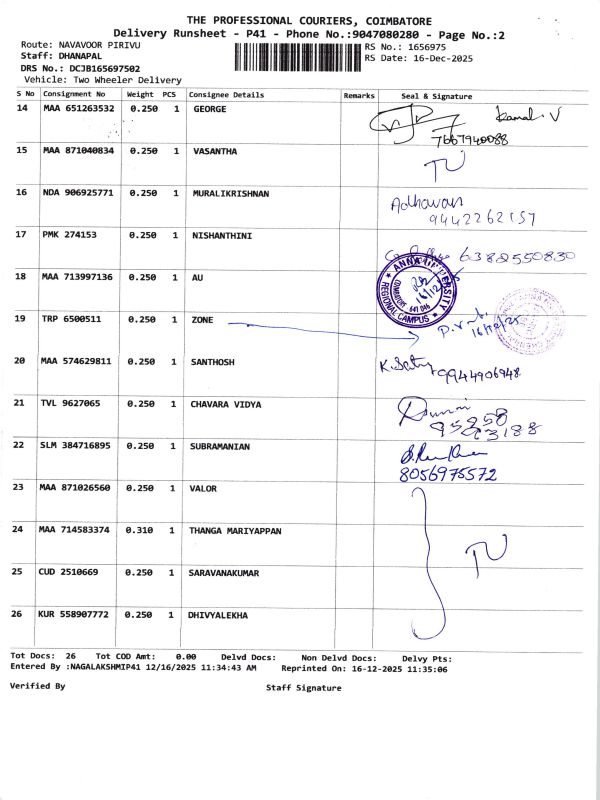 THE PROFESSIONAL COURIERS, COIMBATORE
Delivery Runsheet - P41 - Phone No.:9047080280 - Page No.:2
Route: NAVAVOOR PIRIVU
RS No.: 1656975
Staff: DHANAPAL
RS Date: 16-Dec-2025
DRS No.: DCJB165697502
Vehicle: Two Wheeler Delivery
S No Consignment No Weight PCS Consignee Details Remarks Seal & Signature
14 MAA 651263532 0.250 1 GEORGE
Kamal. V
7667940088
15 MAA 871040834 0.250 1 VASANTHA
TU
16 NDA 906925771 0.250 1 MURALIKRISHNAN
Adhavan
9442262157
17 PMK 274153 0.250 1 NISHANTHINI
6382550830
18 MAA 713997136 0.250 1 AU
ANNA UNIVERSITY
REGIONAL CAMPUS
COIMBATORE
641 046
16/12
19 TRP 6500511 0.250 1 ZONE
16/12/25
20 MAA 574629811 0.250 1 SANTHOSH
9944906948
21 TVL 9627065 0.250 1 CHAVARA VIDYA
95258
93188
22 SLM 384716895 0.250 1 SUBRAMANIAN
8056975572
23 MAA 871026560 0.250 1 VALOR
24 MAA 714583374 0.310 1 THANGA MARIYAPPAN
TU
25 CUD 2510669 0.250 1 SARAVANAKUMAR
26 KUR 558907772 0.250 1 DHIVYALEKHA
Tot Docs: 26 Tot COD Amt: 0.00 Delvd Docs: Non Delvd Docs: Delvy Pts:
Entered By :NAGALAKSHMIP41 12/16/2025 11:34:43 AM Reprinted On: 16-12-2025 11:35:06
Verified By Staff Signature